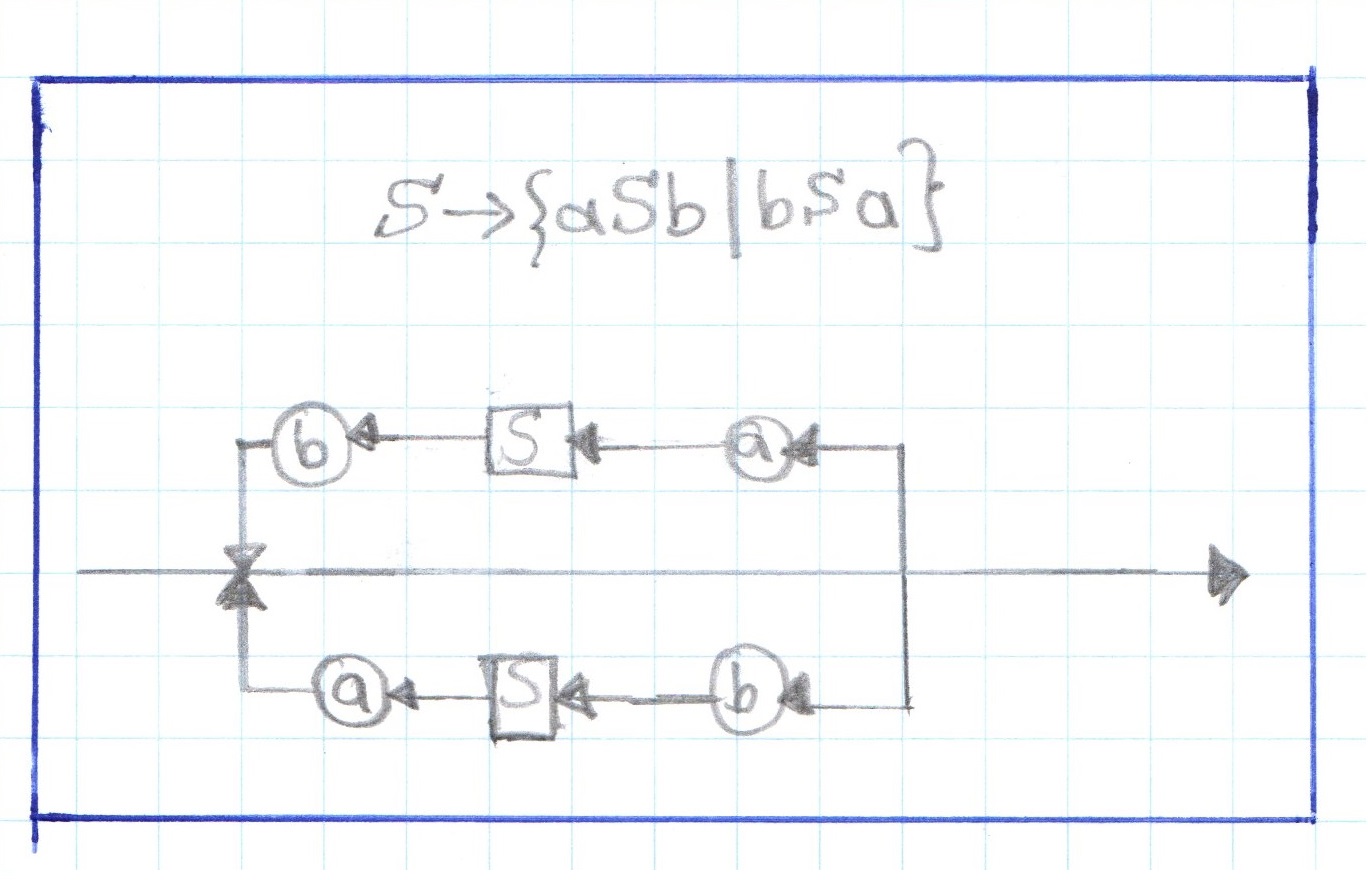 S→{aSb|bSa}
b S a
a S b